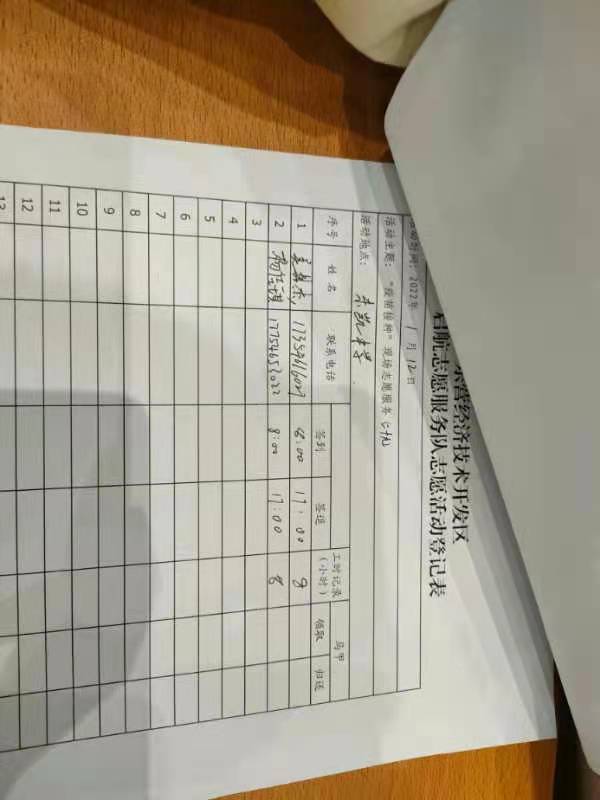 东营经济技术开发区
启航志愿服务队志愿活动登记表
活动时间：2022年 1月 12日
活动主题："疫苗接种"现场志愿服务
活动地点：东凯中学
序号 姓名 联系电话 签到 签退 工时记录（小时） 马甲
领取 归还
1 8:00 17:00 8
2 17754653022 8:00 17:00 8
3
4
5
6
7
8
9
10
11
12
13